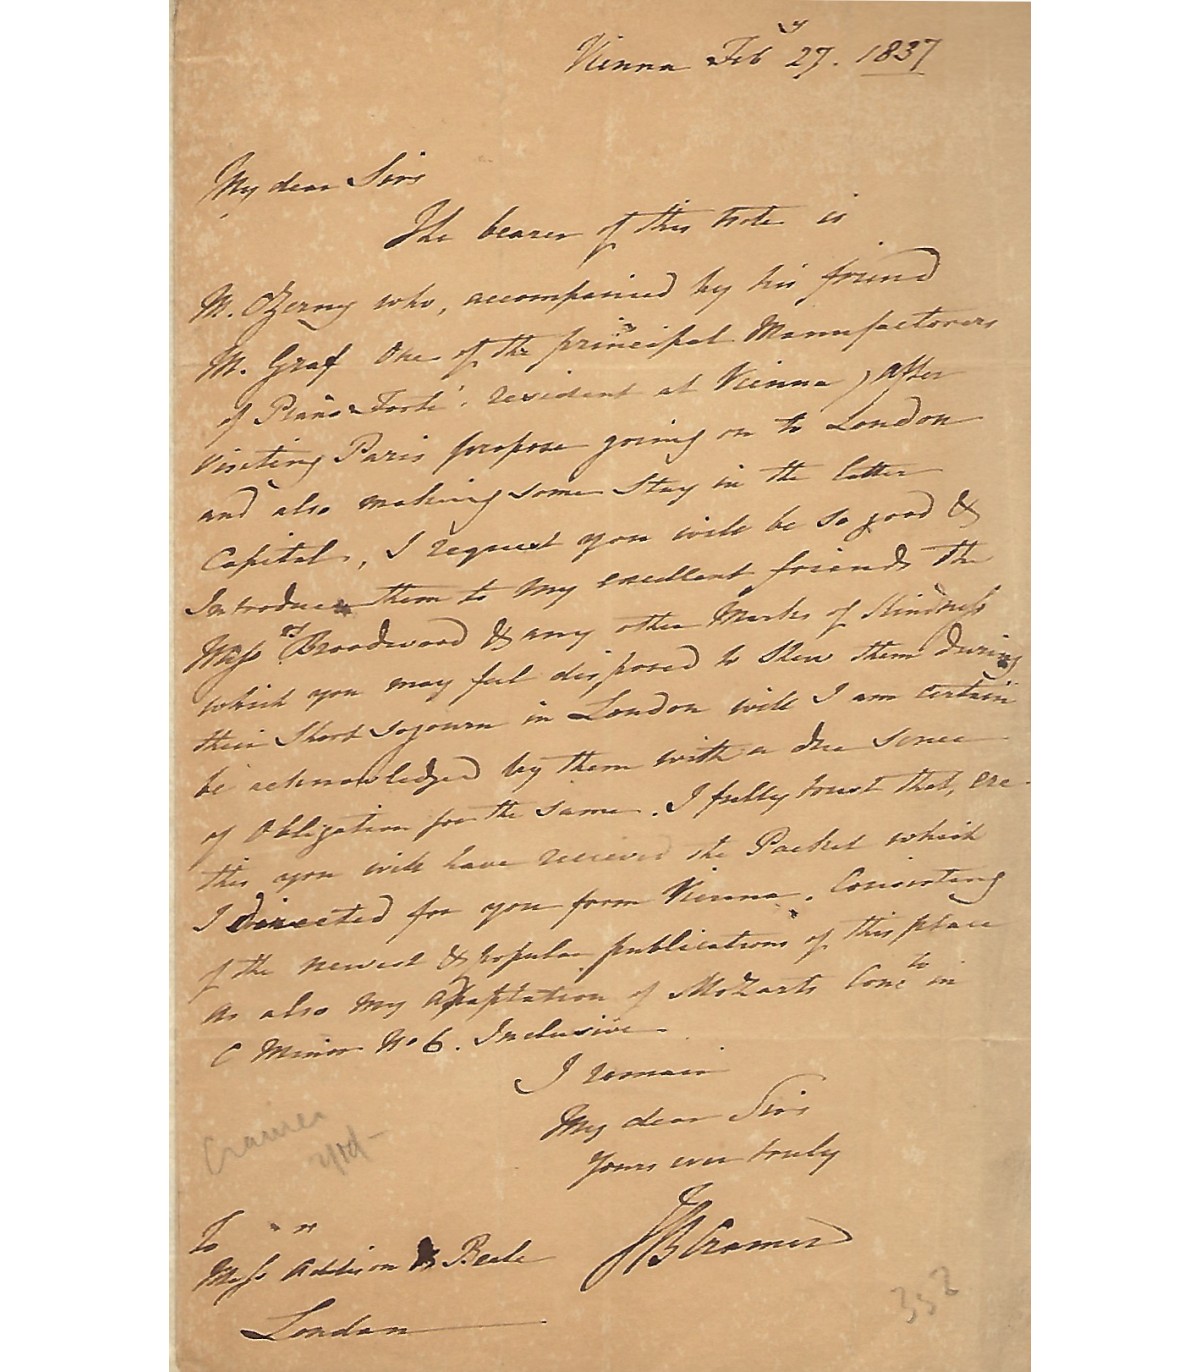 Vienna Feb.y 27. 1837
My dear Sirs
The bearer of this Note is
M. Czerny who, accompanied by his friend
M. Graf One of the principal Manufactorers
of Piano Forte. resident at Vienna, after
Visiting Paris propose going on to London
and also making some Stay in the latter
Capital, I request you will be so good &
Introduce them to My excellent friends the
Messrs Broadwood & any other Marks of Kindness
which you may feel disposed to Shew them during
their Short sojourn in London will I am certain
be acknowledged by them with a due sence
of Obligation for the same. I fully trust that, ere
this you will have recieved the Packet which
I directed for you form Vienna. Consisting
of the newest & popular publications of this place
As also My Adaptation of Mozarts Conc.to in
C Minor No 6. Inclusive
I remain
My dear Sirs
Yours ever truly
JB Cramer
To
Messrs Addison & Beale
London
Cramer
352